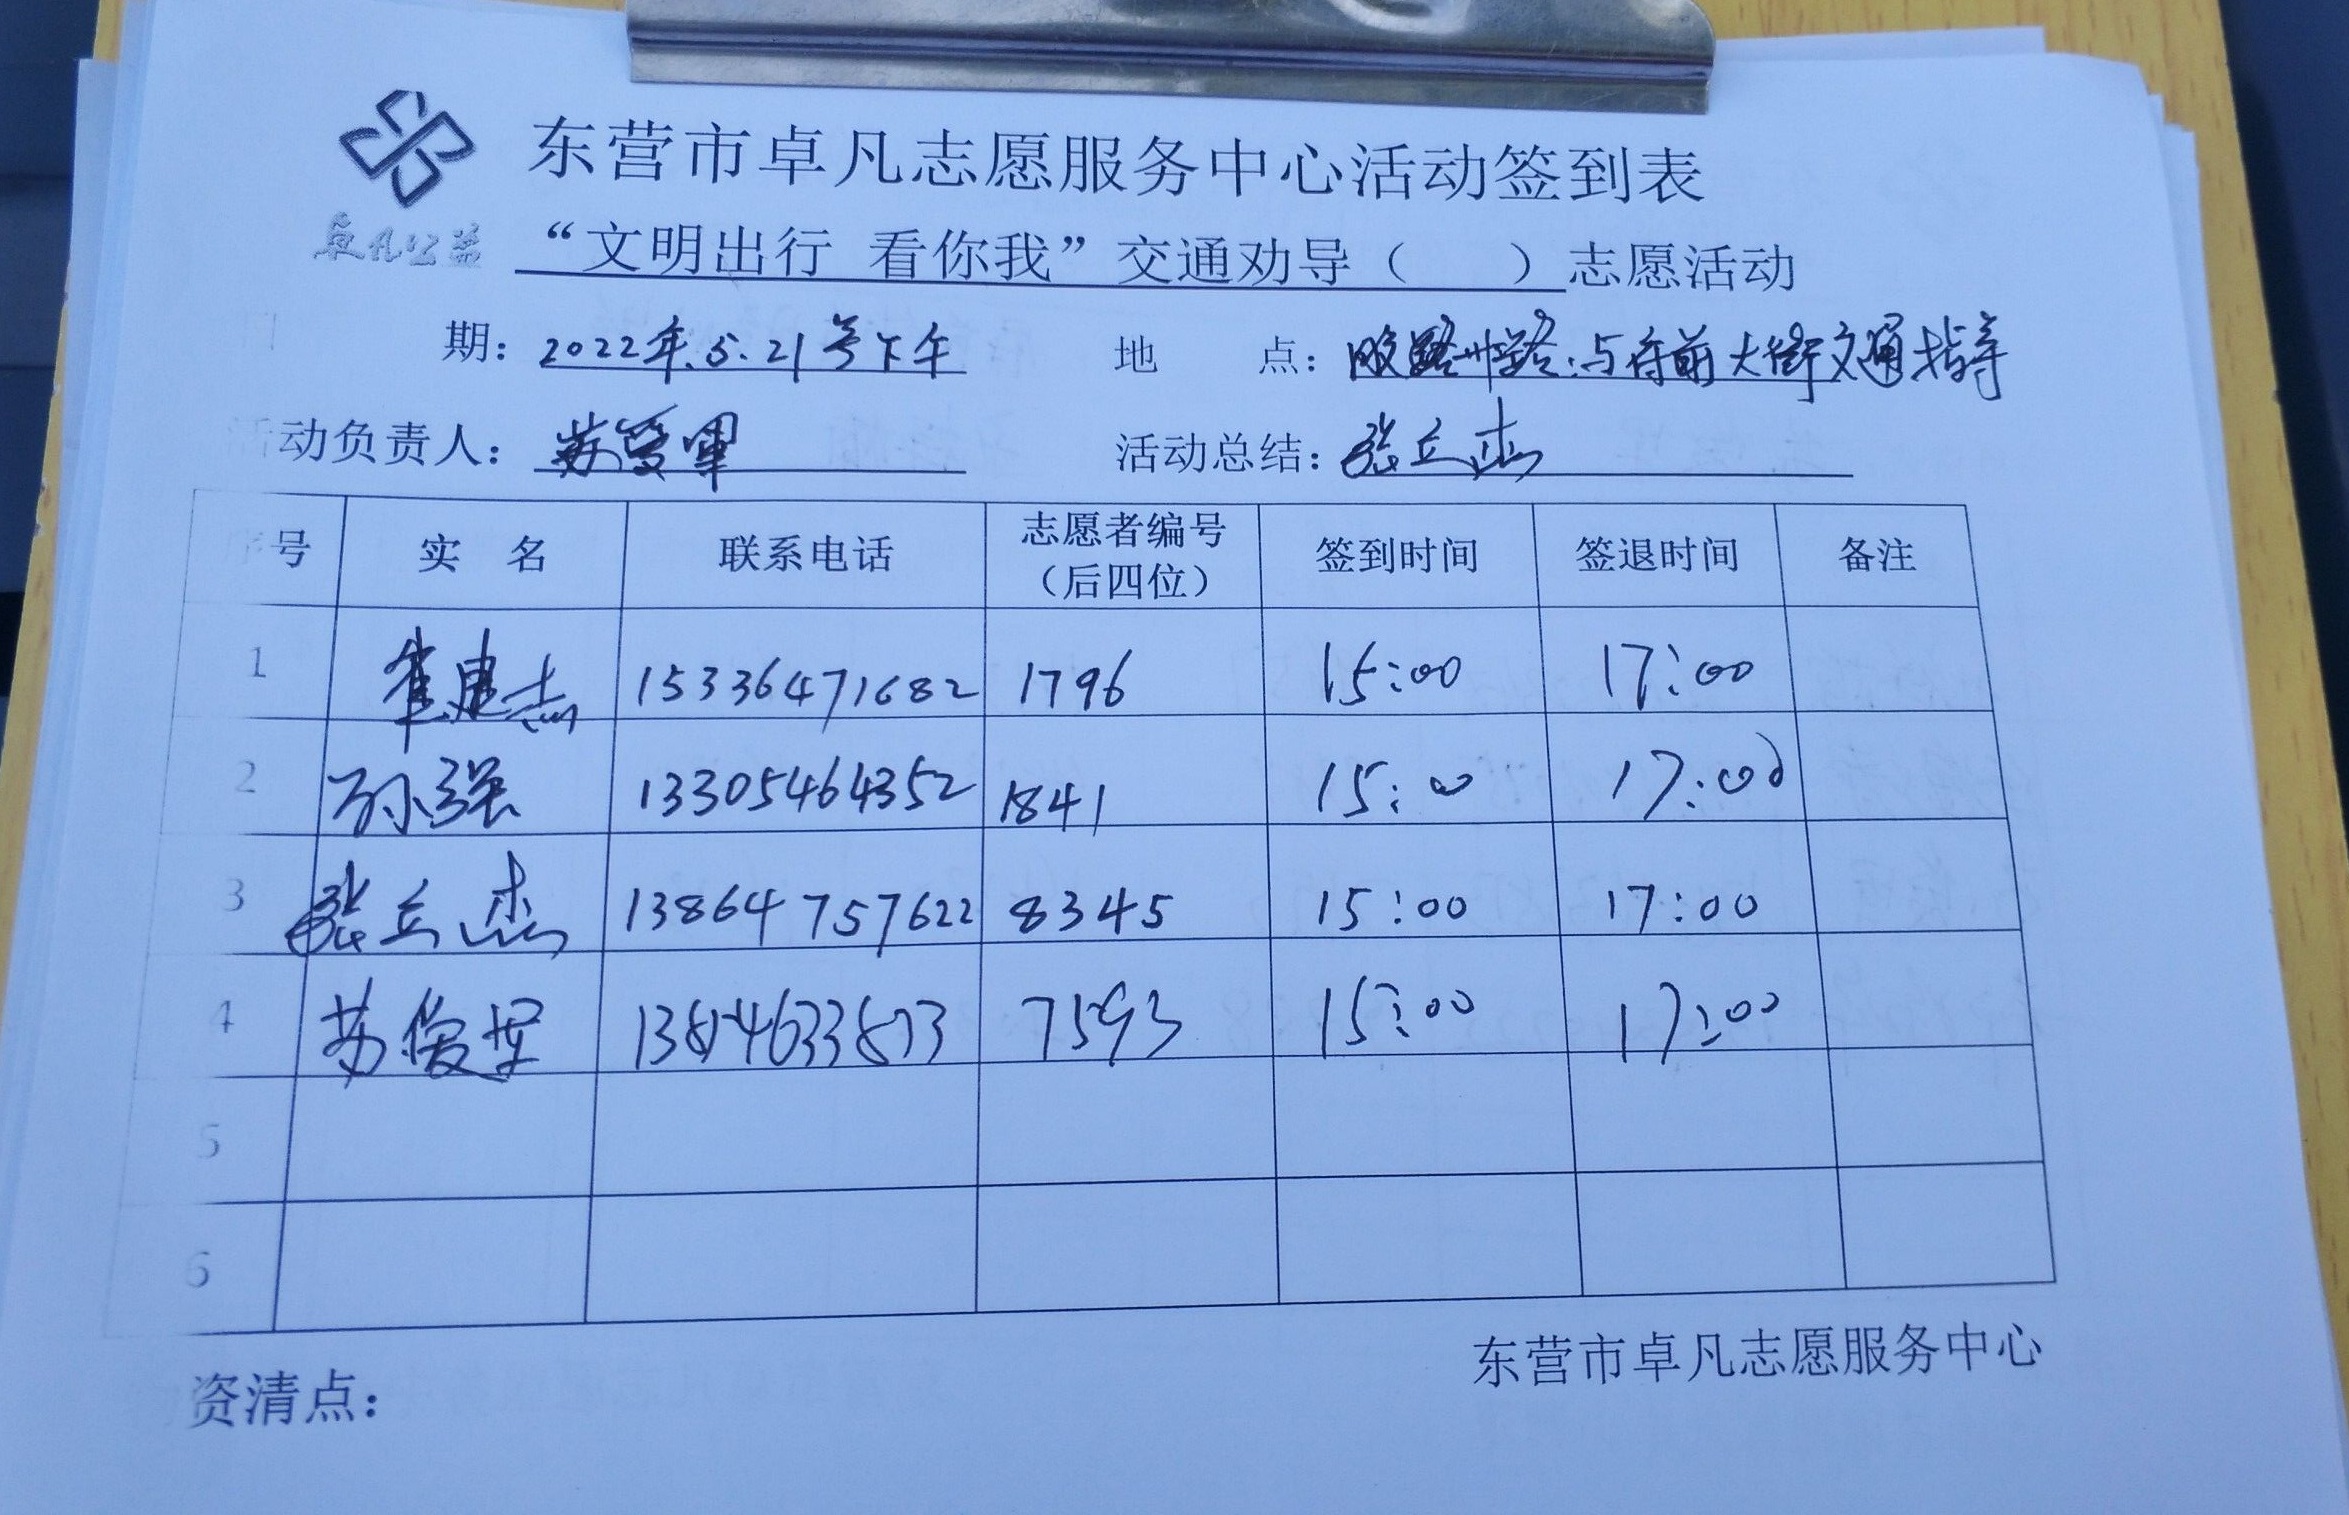 东营市卓凡志愿服务中心活动签到表
卓凡公益
“文明出行 看你我”交通劝导（ ）志愿活动
期：2022年.5.21号下午 地 点：路与府前大街交通指导
活动负责人：苏 活动总结：张立杰
序号 实 名 联系电话 志愿者编号（后四位） 签到时间 签退时间 备注
1 崔建志 15336471682 1796 15:00 17:00
2 孙强 13305464352 1841 15:00 17:00
3 张立杰 13864757622 8345 15:00 17:00
4 苏俊军 7593 15:00 17:00
5
6
东营市卓凡志愿服务中心
资清点：